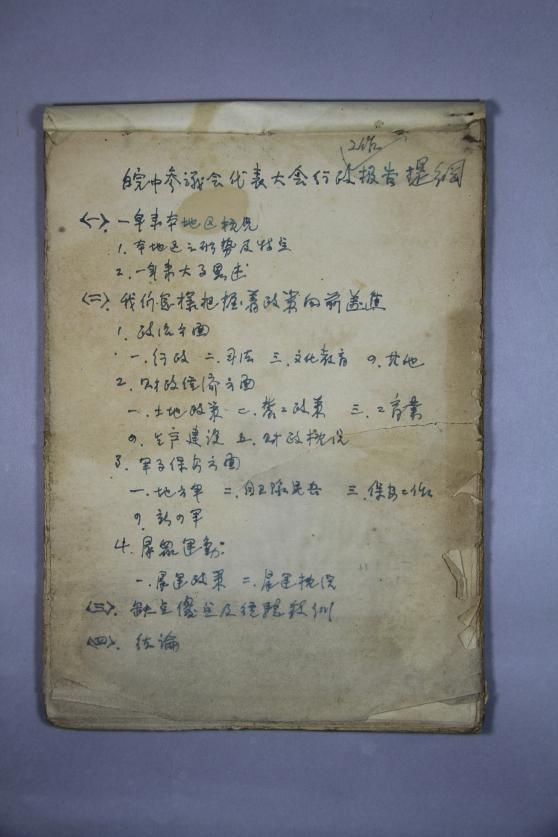 工作
皖中参議会代表大会行政报告提綱
〈一〉. 一年来本地区概况
1. 本地区之形势及特点
2. 一年来大事略述
〈二〉. 我们怎樣把握着政策向前邁進
1. 政治方面
一. 行政 二. 司法 三. 文化教育 四. 其他
2. 财政经济方面
一. 土地政策 二. 劳工政策 三. 工商業
四. 生产建设 五. 财政概况
3. 军事保安方面
一. 地方军 二. 自卫队民兵 三. 保安工作
四. 新四军
4. 羣眾運動:
一. 羣運政策 二. 羣運概况
〈三〉. 缺点優点及经驗教训
〈四〉. 结論